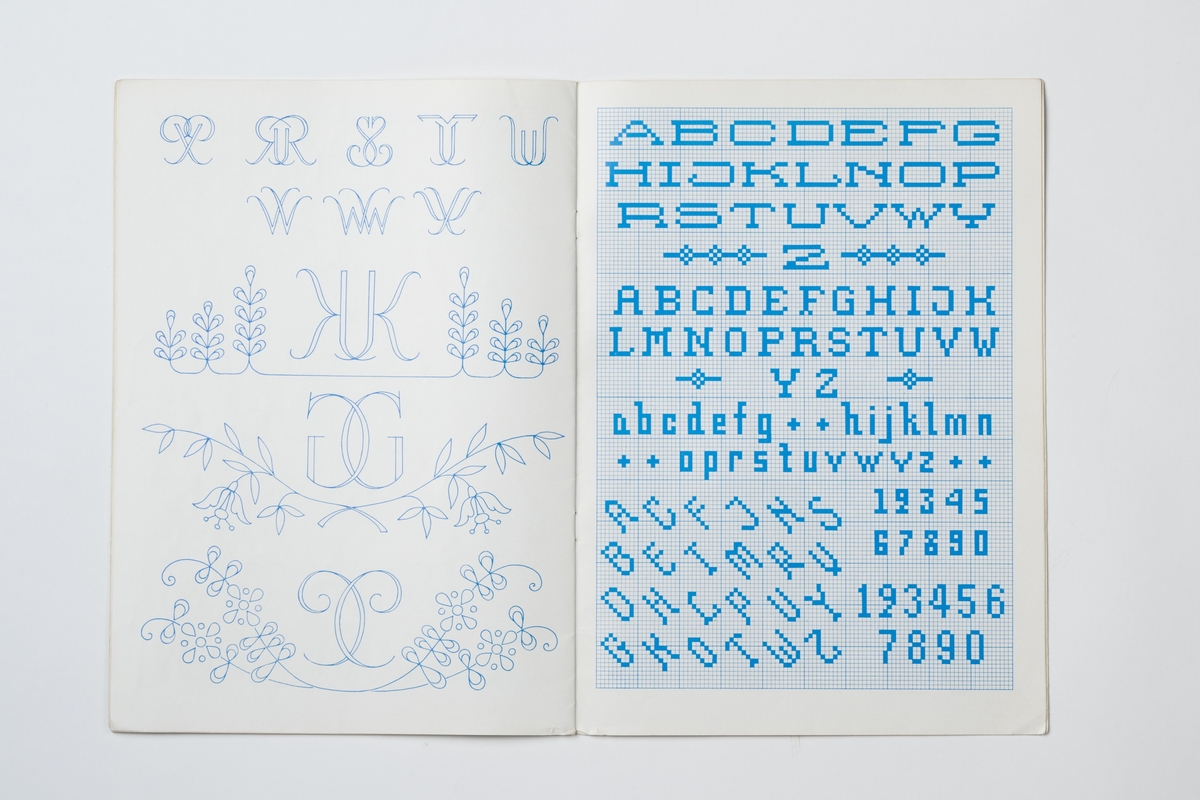 R S T U
V W Y
K
G
C
ABCDEFG
HIJKLNOP
RSTUVWY
Z
ABCDEFGHIJK
LMNOPRSTUVW
YZ
abcdefg++hijklmn
++oprstuvwyz++
A C F J N S
12345
B E I M R U
67890
D H L P U Y
123456
G K O T W Z
7890